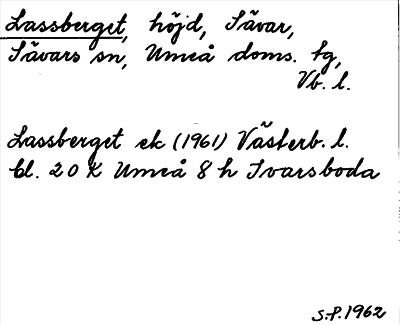 Lassberget, höjd, Sävar,
Sävars sn, Umeå doms. tg,
Vb. l.
Lassberget ek (1961) Västerb. l.
bl. 20 K Umeå 8 h Ivarsboda
S.P. 1962